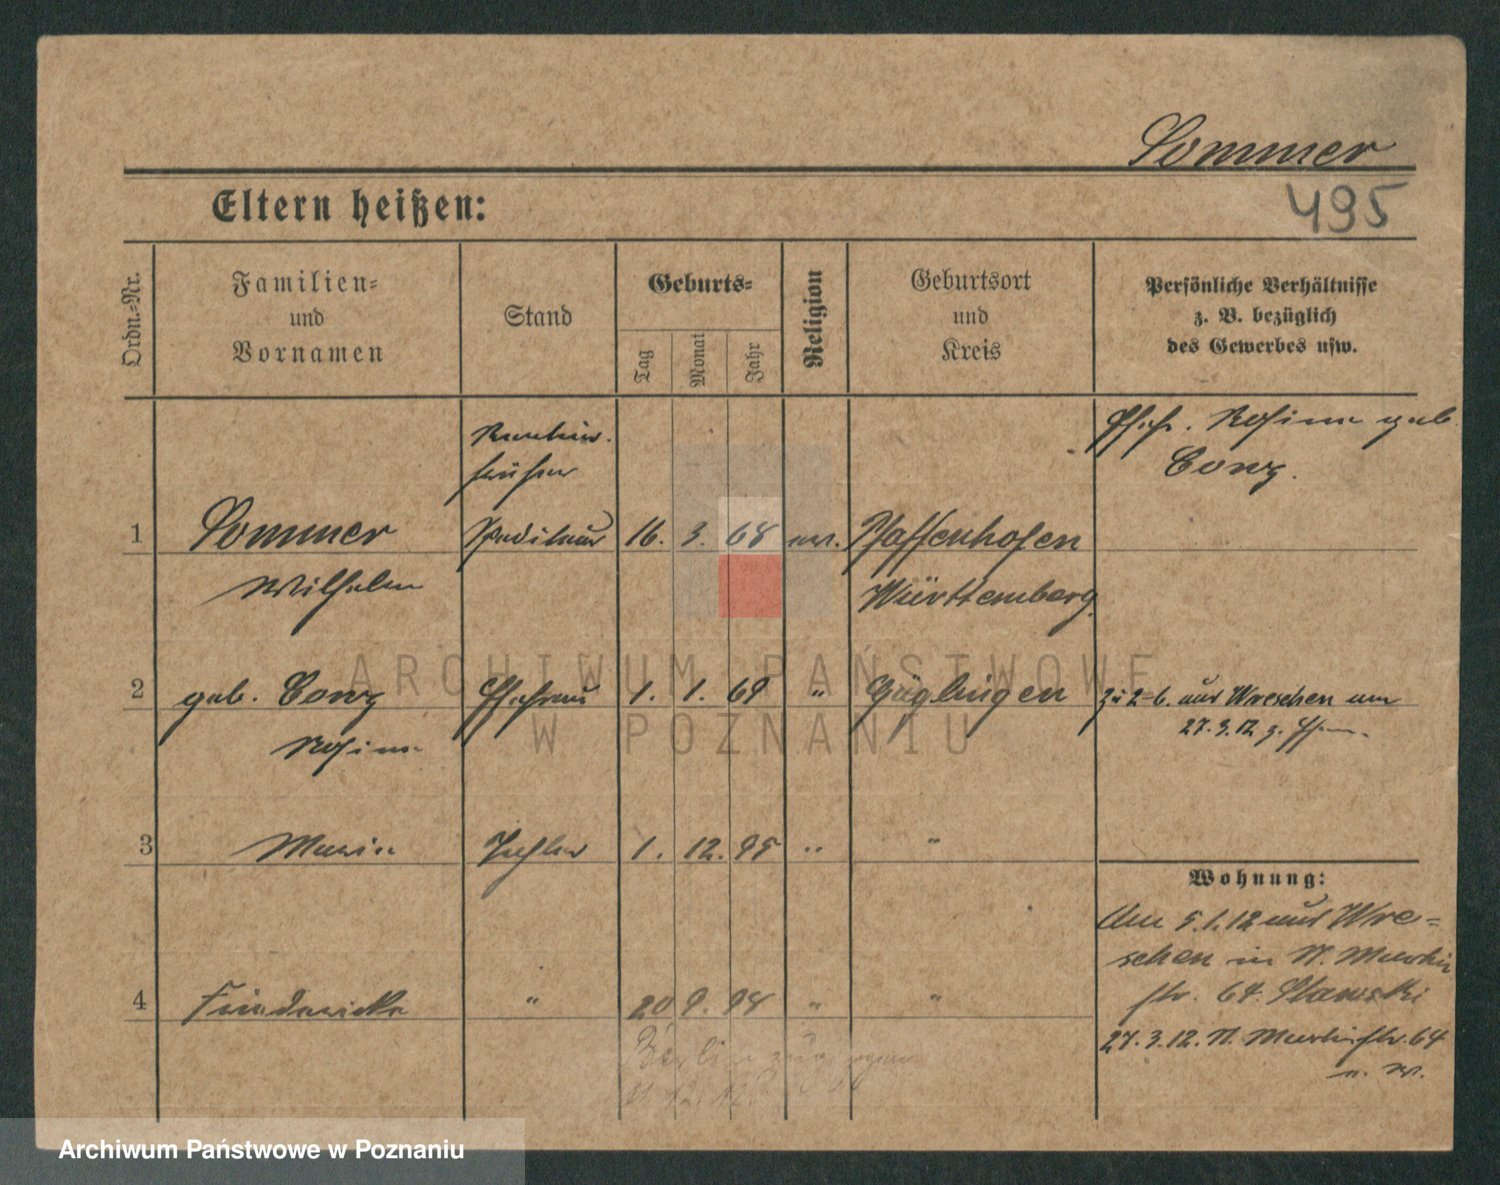 Sommer
495
Eltern heißen:
Ordn.-Nr.
Familien-
und
Vornamen
Stand
Geburts-
Tag
Monat
Jahr
Religion
Geburtsort
und
Kreis
Persönliche Verhältnisse
z. B. bezüglich
des Gewerbes usw.
Ehefr. Rosine geb.
Conz.
1 Sommer Spediteur 16. 3. 68 ev. Pfaffenhofen
Wilhelm Württemberg.
2 geb. Conz Ehefrau 1. 1. 69 " Güglingen
Rosine
zu 2-6. aus Wreschen am
27.3.12 z. Ehem.
3 Marie Tochter 1. 12. 95 " "
Wohnung:
Am 5.1.12 aus Wre-
schen in N. Martin
str. 64. Slawski
4 Friedericke " 20 9. 98 " "
27.3.12. N. Martinstr. 64
Berlin
ARCHIWUM PAŃSTWOWE
W POZNANIU
Archiwum Państwowe w Poznaniu